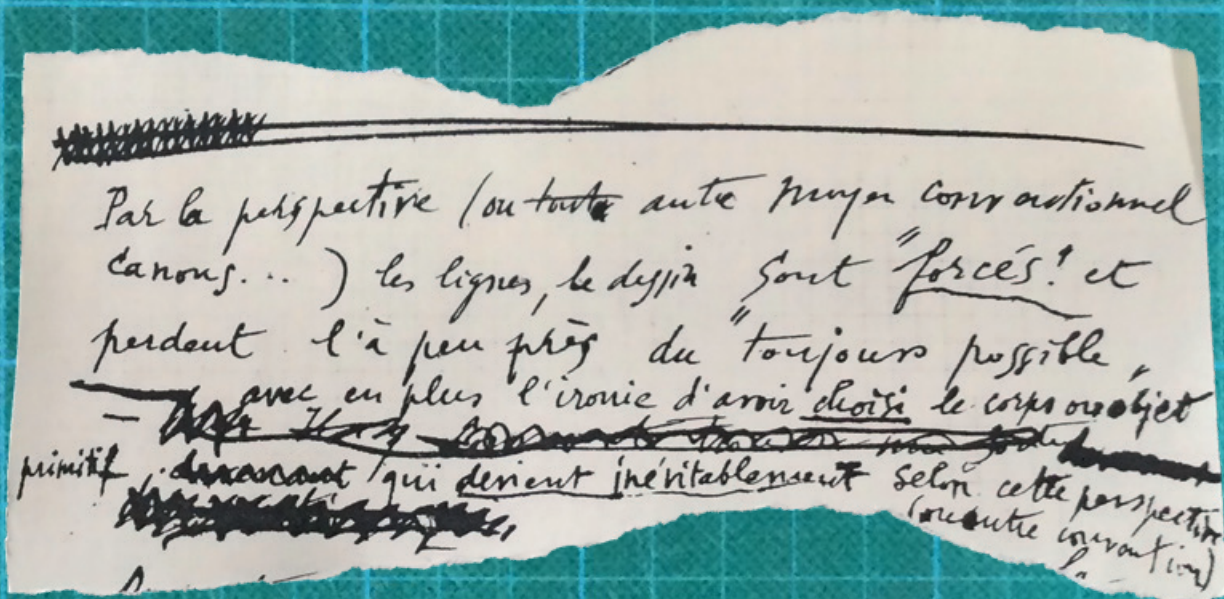 Par la perspective (ou toute autre moyen conventionnel
Canons...) les lignes, le dessin sont "forcés" et
perdent l'à peu près du "toujours possible"
avec en plus l'ironie d'avoir choisi le corps ou objet
primitif, qui devient inévitablement selon cette perspective
(ou autre convention)